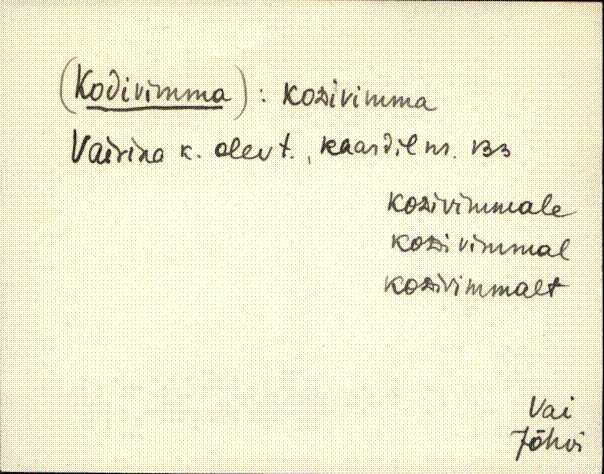 (Kodivimma) : kozivimma
Vairina k. olev t., kaardil nr. 133
kozivimmale
kozivimmal
kozivimmalt
Vai
Jõhvi